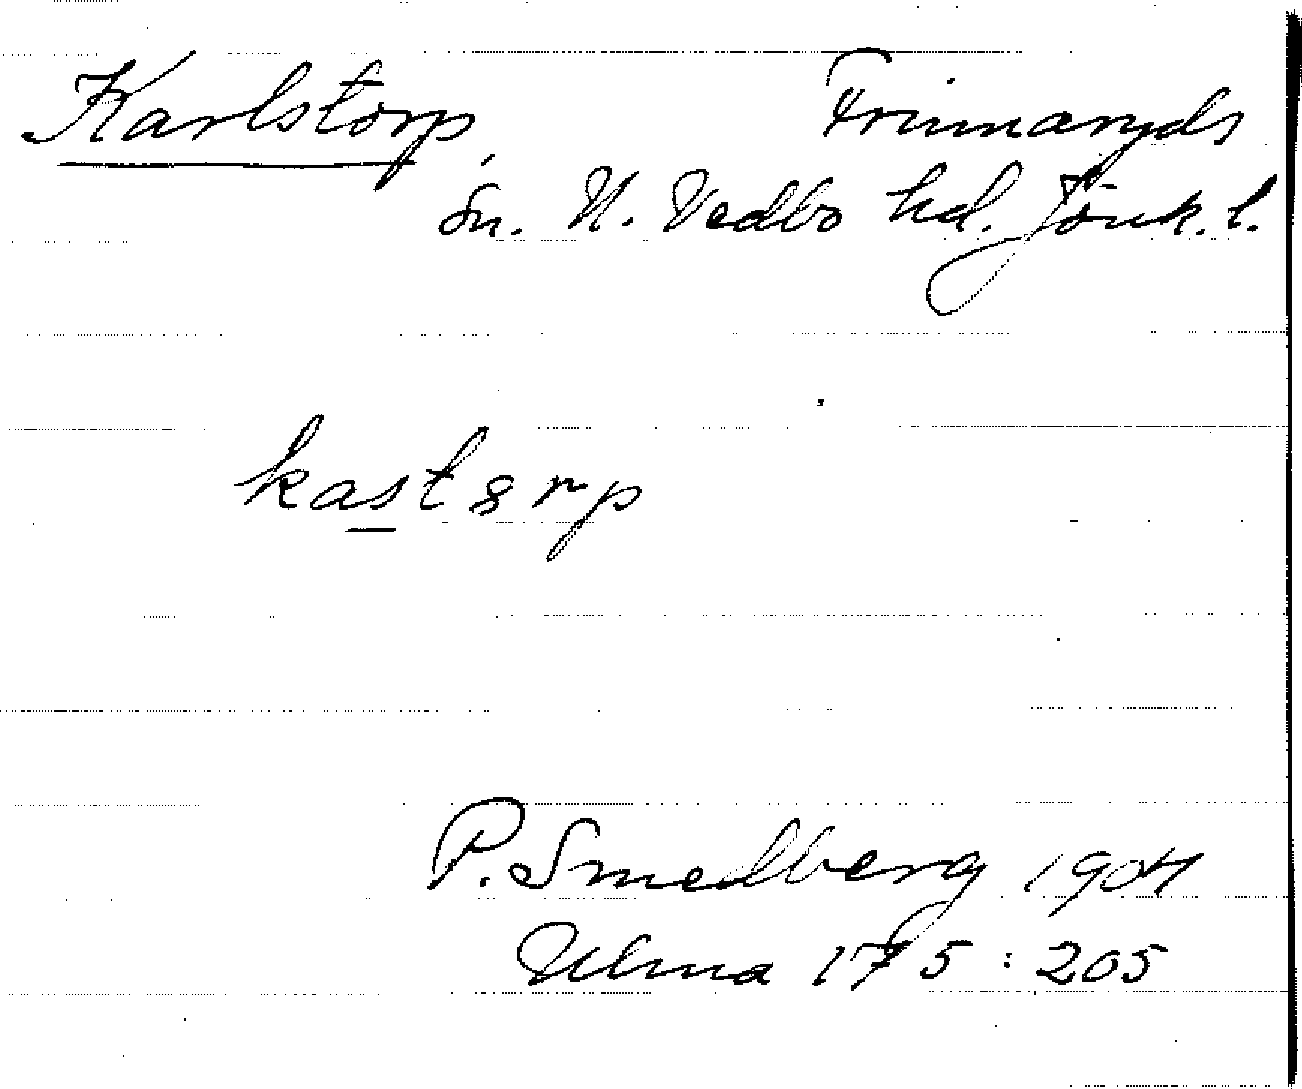 Karlstorp, Frinnaryds
sn. N. Vedbo hd. Jönk. l.
kastɜrp
P. Smedberg 1904
Ulma 175:205